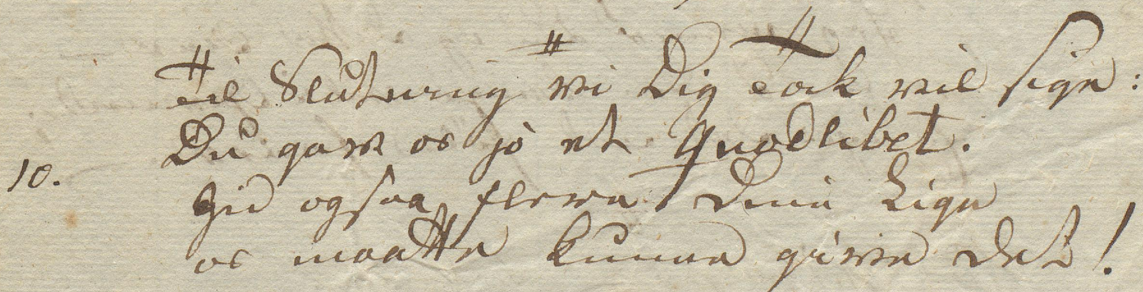 Til Slutning vi Dig Tak vil sige:
Du gav os jo et Quodlibet.
10. Gid ogsaa flere Dine Lige
os maatte kunne give det!